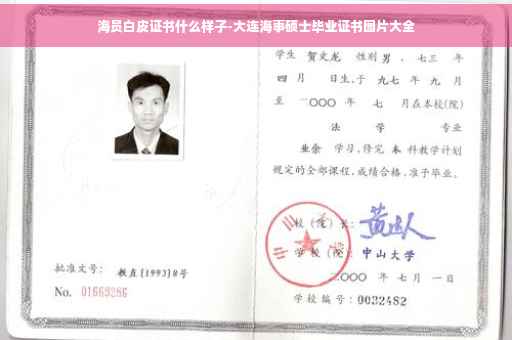 海员白皮证书什么样子-大连海事硕士毕业证书图片大全
学生 贺文龙 性别 男 、七三 年
四 月 日生,于 九七 年 九 月
至 二〇〇〇 年 七 月在本校(院)
法 学 专业
业余 学习,修完 本 科教学计划
规定的全部课程,成绩合格,准予毕业。
校(院)长:
学校(院): 中山大学
二〇〇〇 年 七 月 一 日
学校编号: 0032482
批准文号: 教直[1993]8号
No. 01669286